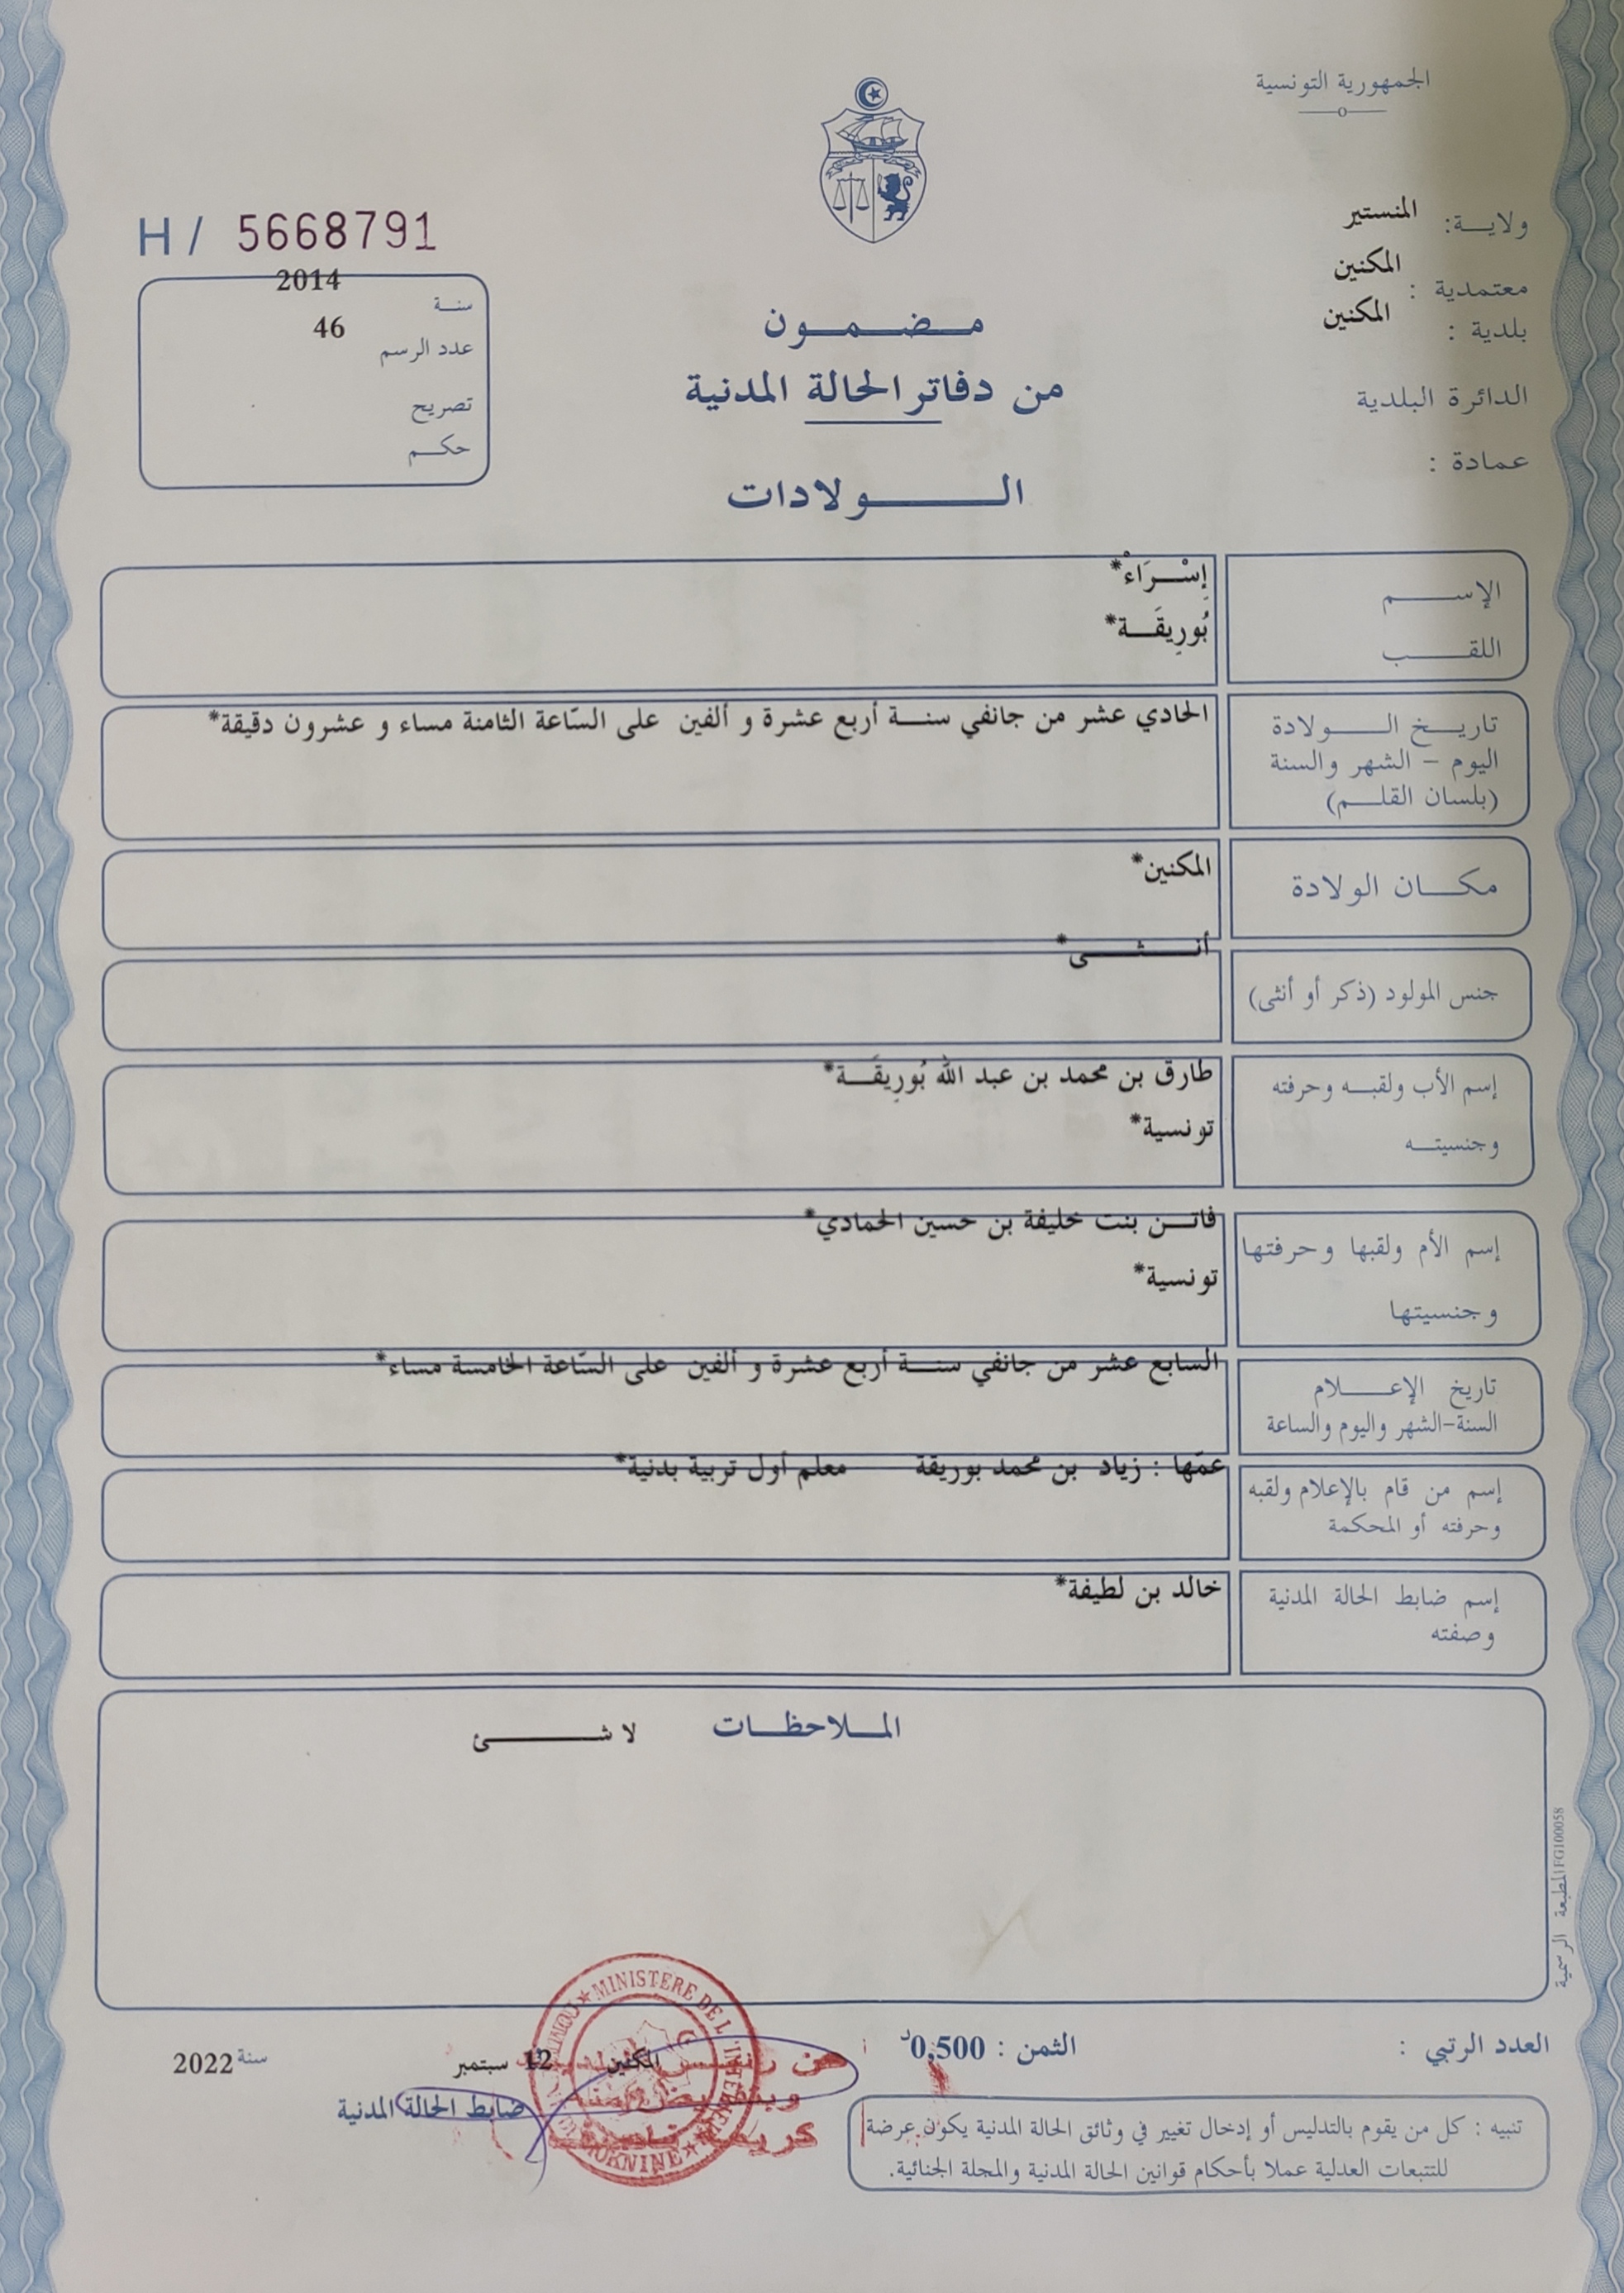 الجمهورية التونسية
ولايـــة: المنستير
معتمدية : المكنين
بلدية : المكنين
الدائرة البلدية
عمادة :
H / 5668791
سنـة 2014
عدد الرسم 46
تصريح
حكـــم
مـــضـــمـــون
من دفاتر الحالة المدنية
الـــــولادات
الإســـــم إِسْـــرَاءْ*
اللقـــــب بُورِيقَـــة*
تاريـــخ الـــــولادة الحادي عشر من جانفي سنـــة أربع عشرة و ألفين على السّاعة الثامنة مساء و عشرون دقيقة*
اليوم – الشهر والسنة
(بلسان القلـــم)
مكـــان الولادة المكنين*
جنس المولود (ذكر أو أنثى) أنـــثـــى*
إسم الأب ولقبـــه وحرفته طارق بن محمد بن عبد الله بُورِيقَـــة*
وجنسيتـــه تونسية*
إسم الأم ولقبها وحرفتها فاتـــن بنت خليفة بن حسين الحمادي*
وجنسيتها تونسية*
تاريخ الإعـــــلام السابع عشر من جانفي سنـــة أربع عشرة و ألفين على السّاعة الخامسة مساء*
السنة-الشهر واليوم والساعة
إسم من قام بالإعلام ولقبه عمّها : زياد بن محمد بوريقة معلم أول تربية بدنية*
وحرفته أو المحكمة
إسم ضابط الحالة المدنية خالد بن لطيفة*
وصفته
المـــلاحظـــات لا شـــــئ
المطبعة الرسمية FG100058
العدد الرتبي :
الثمن : 0,500د
المكنين 12 سبتمبر سنة 2022
ضابط الحالة المدنية
MINISTERE DE L'INTERIEUR
MOKNINE
تنبيه : كل من يقوم بالتدليس أو إدخال تغيير في وثائق الحالة المدنية يكون عرضة
للتتبعات العدلية عملا بأحكام قوانين الحالة المدنية والمجلة الجنائية.